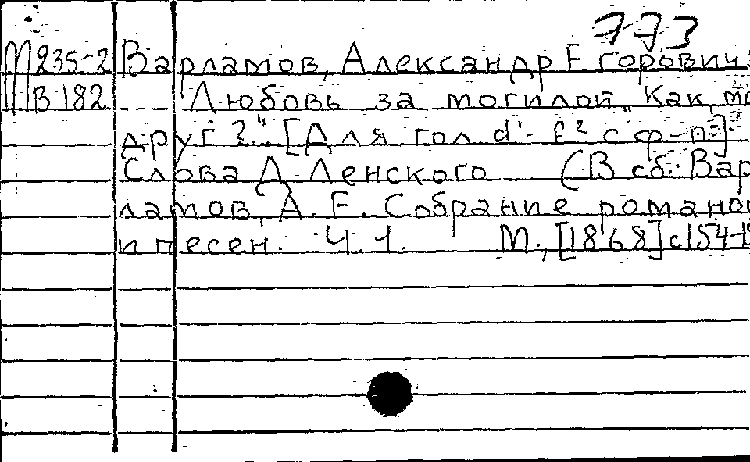 773
М 235-2 Варламов, Александр Егорович.
В 182 Любовь за могилой. "Как, мо
друг?". [Для гол. d¹-f² с ф-п.]
Слова Д. Ленского (В сб.: Вар
ламов, А. Е. Собрание романсо
и песен. Ч. 1. М., [1868] с 154-1